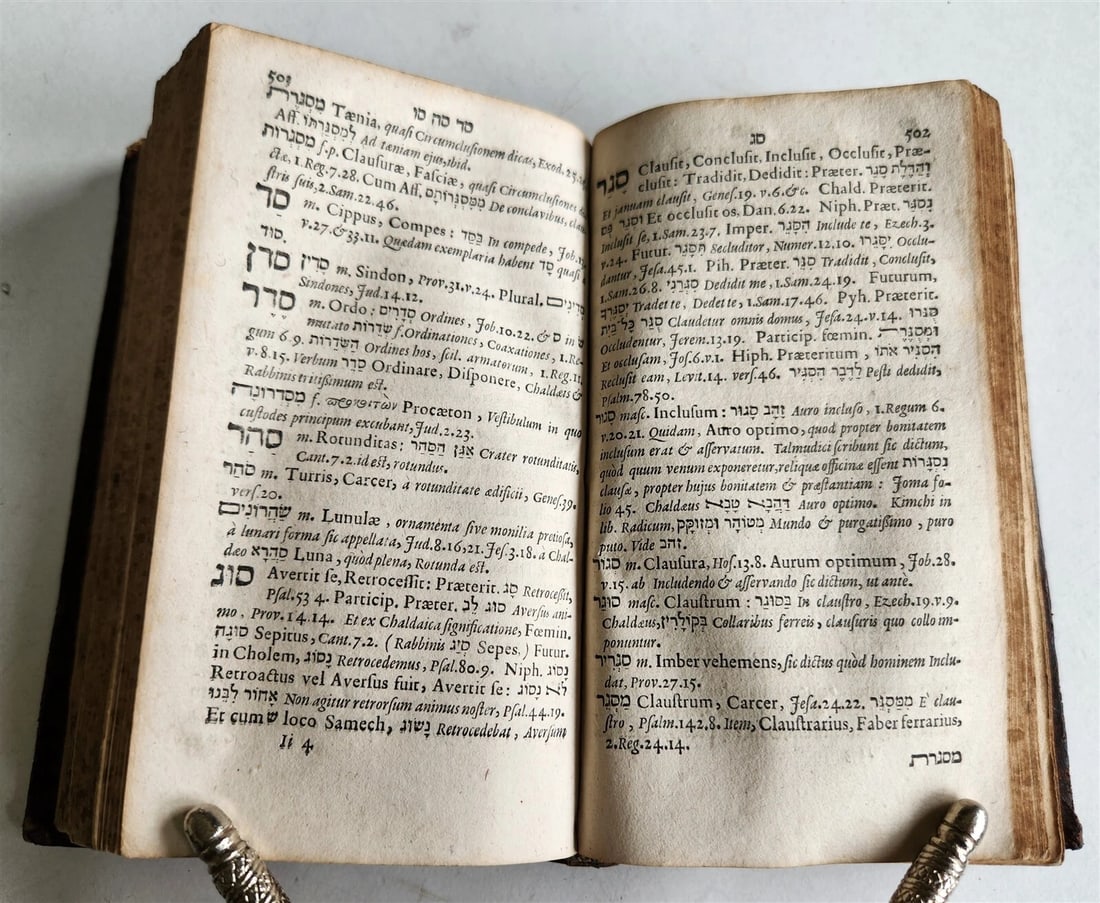 סג 502
סָגַר Clauſit, Concluſit, Incluſit, Occluſit, Præ-
cluſit: Tradidit, Dedidit: Præter. וְהַדֶּלֶת סָגַר
Et januam clauſit, Geneſ.19. v.6.&c. Chald. Præterit.
וּסְגַר פֻּם Et occluſit os, Dan.6.22. Niph. Præt. נִסְגַּר
Incluſit ſe, 1.Sam.23.7. Imper. הִסָּגֵר Include te, Ezech.3.
v.24. Futur. תִּסָּגֵר Secluditor, Numer.12.10. יִסָּגֵרוּ Occlu-
dantur, Jeſa.45.1. Pih. Præter. סִגַּר Tradidit, Concluſit,
1.Sam.26.8. סִגְּרַנִי Dedidit me, 1.Sam.24.19. Futurum,
יְסַגֶּרְךָ Tradet te, Dedet te, 1.Sam.17.46. Pyh. Præterit.
סֻגַּר כָּל־בַּיִת Claudetur omnis domus, Jeſa.24.v.14. סֻגְּרוּ
Occludentur, Jerem.13.19. Particip. fœmin. וּמְסֻגֶּרֶת
Et occluſam, Joſ.6.v.1. Hiph. Præteritum, הִסְגִּיר אֹתוֹ
Recluſit eam, Levit.14. verſ.46. לַדֶּבֶר הִסְגִּיר Peſti dedidit,
Pſalm.78.50.
סָגוּר maſc. Incluſum: זָהָב סָגוּר Auro incluſo, 1.Regum 6.
v.20.21. Quidam, Auro optimo, quod propter bonitatem
incluſum erat & aſſervatum. Talmudici ſcribunt ſic dictum,
quòd quum venum exponeretur, reliquæ officinæ eſſent נִסְגָּרוֹת
clauſæ, propter hujus bonitatem & præſtantiam: Joma fo-
lio 45. Chaldæus דַּהֲבָא טָבָא Auro optimo. Kimchi in
lib. Radicum, מְטוֹהָר וּמְזוּקָּק Mundo & purgatiſſimo, puro
puto. Vide זהב.
סְגוֹר m. Clauſura, Hoſ.13.8. Aurum optimum, Job.28.
v.15. ab Includendo & aſſervando ſic dictum, ut ante.
סוּגַר maſc. Clauſtrum: בַּסּוּגַר In clauſtro, Ezech.19.v.9.
Chaldæus, בְּקוֹלָרִין Collaribus ferreis, clauſuris quo collo im-
ponuntur.
סַגְרִיר m. Imber vehemens, ſic dictus quòd hominem Inclu-
dat, Prov.27.15.
מַסְגֵּר Clauſtrum, Carcer, Jeſa.24.22. מִמַּסְגֵּר E clau-
ſtro, Pſalm.142.8. Item, Clauſtrarius, Faber ferrarius,
2.Reg.24.14.
מסגרת
503 סד סה סו
מִסְגֶּרֶת Tænia, quaſi Circumcluſionem dicas, Exod.25.25.
Aff. לְמִסְגַּרְתּוֹ Ad tæniam ejus, ibid.
מִסְגְּרוֹת f.p. Clauſuræ, Faſciæ, quaſi Circumcluſiones
ctæ, 1.Reg.7.28. Cum Aff. מִמִּסְגְּרוֹתָם De conclavibus, clau-
ſtris ſuis, 2.Sam.22.46.
סַד m. Cippus, Compes: בַּסַּד In compede, Job.13.
v.27.&33.11. Quædam exemplaria habent סָד quaſi à
סוּד.
סדן סָדִין m. Sindon, Prov.31.v.24. Plural. סְדִינִים
Sindones, Jud.14.12.
סֵדֶר m. Ordo: סְדָרִים Ordines, Job.10.22. & ס in ש
mutato שְׂדֵרוֹת f. Ordinationes, Coaxationes, 1.Re-
gum 6 9. הַשְּׂדֵרוֹת Ordines hos, ſcil. armatorum, 1.Reg.11.
v.8.15. Verbum סָדַר Ordinare, Diſponere, Chaldæis &
Rabbinis tritiſſimum eſt.
מִסְדְּרוֹנָה f. Procæton, Veſtibulum in quo
cuſtodes principum excubant, Jud.2.23.
סַהַר m. Rotunditas: אַגַּן הַסַּהַר Crater rotunditatis,
Cant.7.2. id eſt, rotundus.
סֹהַר m. Turris, Carcer, a rotunditate ædificii, Geneſ.39.
verſ.20.
שַׂהֲרוֹנִים m. Lunulæ, ornamenta ſive monilia pretioſa,
à lunari forma ſic appellata, Jud.8.16,21. Jeſ.3.18. à Chal-
dæo סַהֲרָא Luna, quòd plena, Rotunda eſt.
סוּג Avertit ſe, Retroceſſit: Præterit. סָג Retroceſſit,
Pſal.53 4. Particip. Præter. סוּג לֵב Averſus ani-
mo, Prov.14.14. Et ex Chaldaica ſignificatione, Fœmin.
סוּגָה Sepitus, Cant.7.2. (Rabbinis סְיָג Sepes.) Futur.
in Cholem, נָסוֹג Retrocedemus, Pſal.80.9. Niph. נָסוֹג
Retroactus vel Averſus fuit, Avertit ſe: לֹא נָסוֹג
אָחוֹר לִבֵּנוּ Non agitur retrorſum animus noſter, Pſal.44.19.
Et cum ש loco Samech, נָשׂוֹג Retrocedebat, Averſum
Ii 4